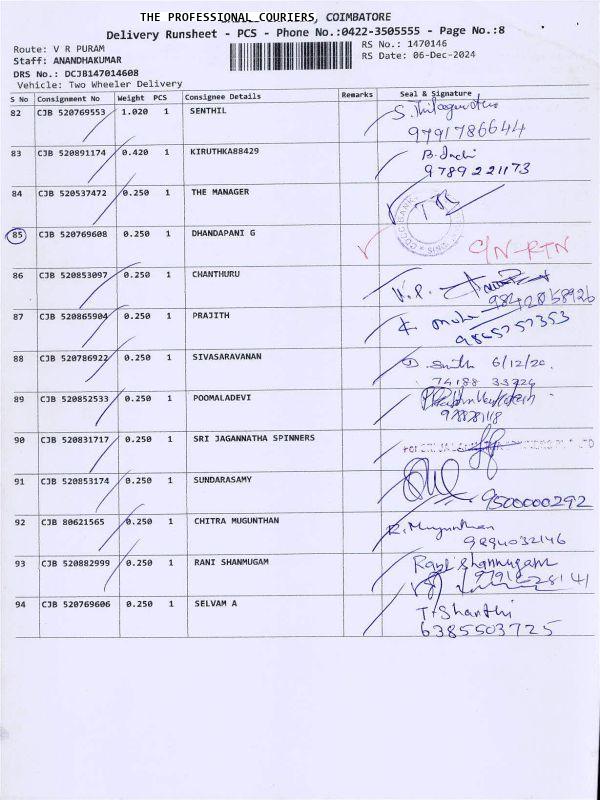 THE PROFESSIONAL COURIERS, COIMBATORE
Delivery Runsheet - PCS - Phone No.:0422-3505555 - Page No.:8
Route: V R PURAM
RS No.: 1470146
Staff: ANANDHAKUMAR
RS Date: 06-Dec-2024
DRS No.: DCJB147014608
Vehicle: Two Wheeler Delivery
S No Consignment No Weight PCS Consignee Details Remarks Seal & Signature
82 CJB 520769553 1.020 1 SENTHIL
9791786644
83 CJB 520891174 0.420 1 KIRUTHKA88429
9789221173
84 CJB 520537472 0.250 1 THE MANAGER
85 CJB 520769608 0.250 1 DHANDAPANI G C/N-RTN
86 CJB 520853097 0.250 1 CHANTHURU
87 CJB 520865904 0.250 1 PRAJITH
9865757353
88 CJB 520786922 0.250 1 SIVASARAVANAN 6/12/20
89 CJB 520852533 0.250 1 POOMALADEVI
90 CJB 520831717 0.250 1 SRI JAGANNATHA SPINNERS
91 CJB 520853174 0.250 1 SUNDARASAMY
9500000292
92 CJB 80621565 0.250 1 CHITRA MUGUNTHAN R. Mugunthan
9894032146
93 CJB 520882999 0.250 1 RANI SHANMUGAM Rani Shanmugam
94 CJB 520769606 0.250 1 SELVAM A T. Shanthi
6385503725